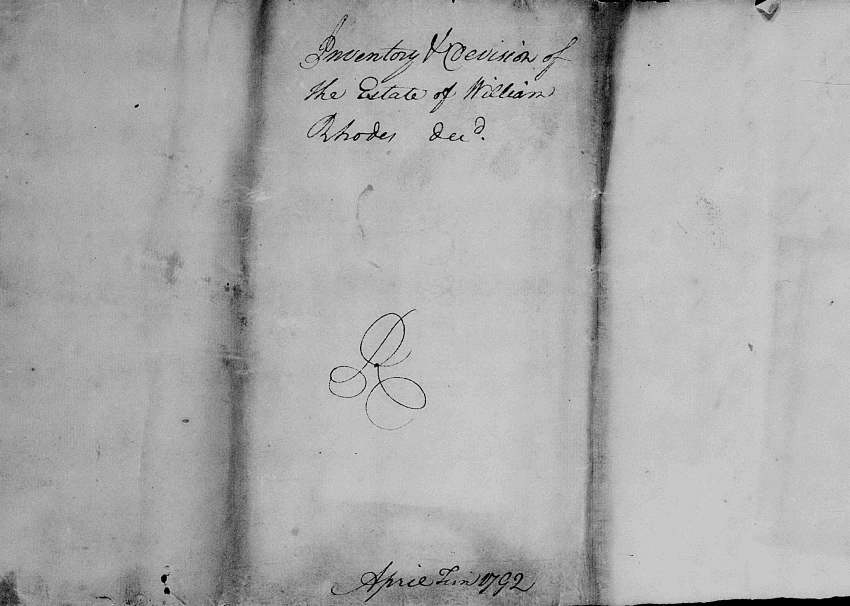 Inventory & Devision of
the Estate of William
Rhodes decd.
R
April Term 1792